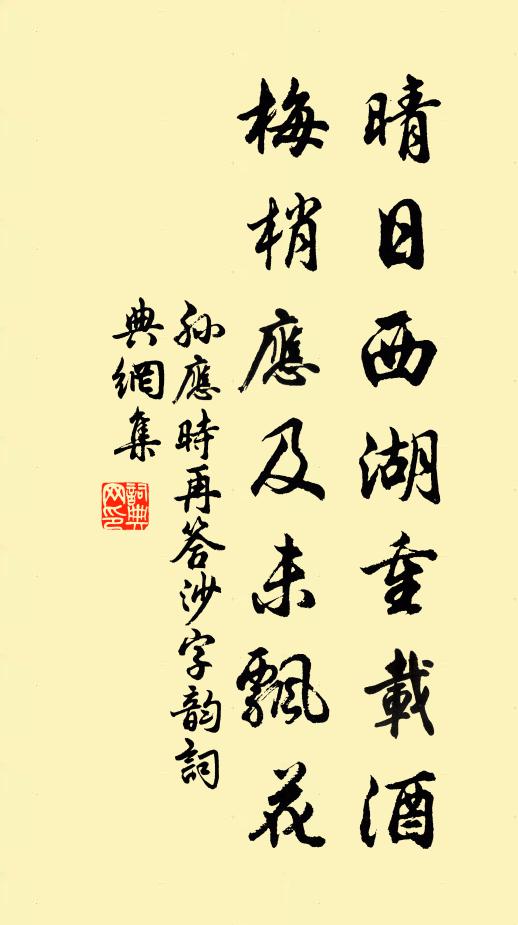 晴日西湖重載酒
梅梢應及未飄花
孫應時再答沙字韵詞
典網集
詞典
网印